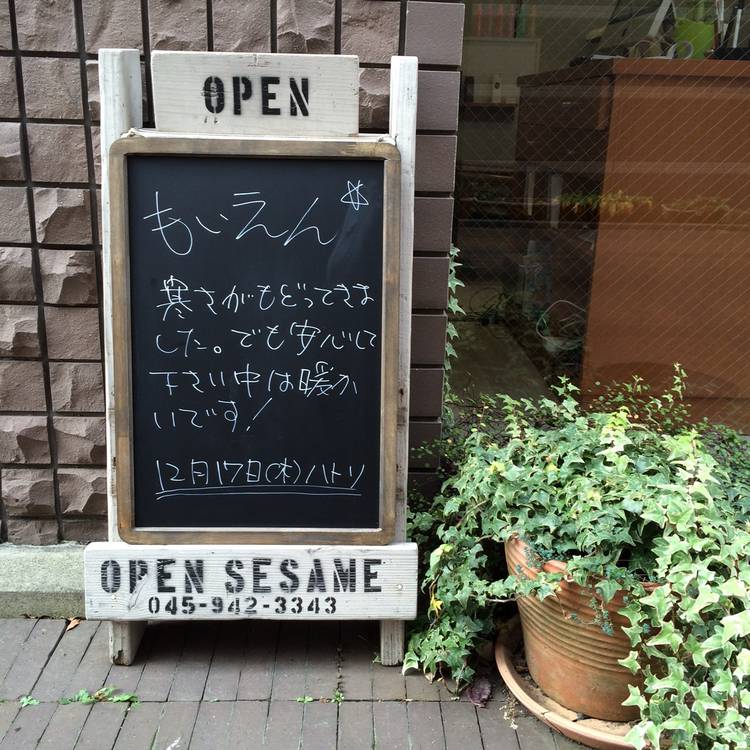 OPEN
もいえん☆
寒さがもどってきま
した。でも安心して
下さい中は暖か
いです!
12月17日(木)ハトリ
OPEN SESAME
045-942-3343